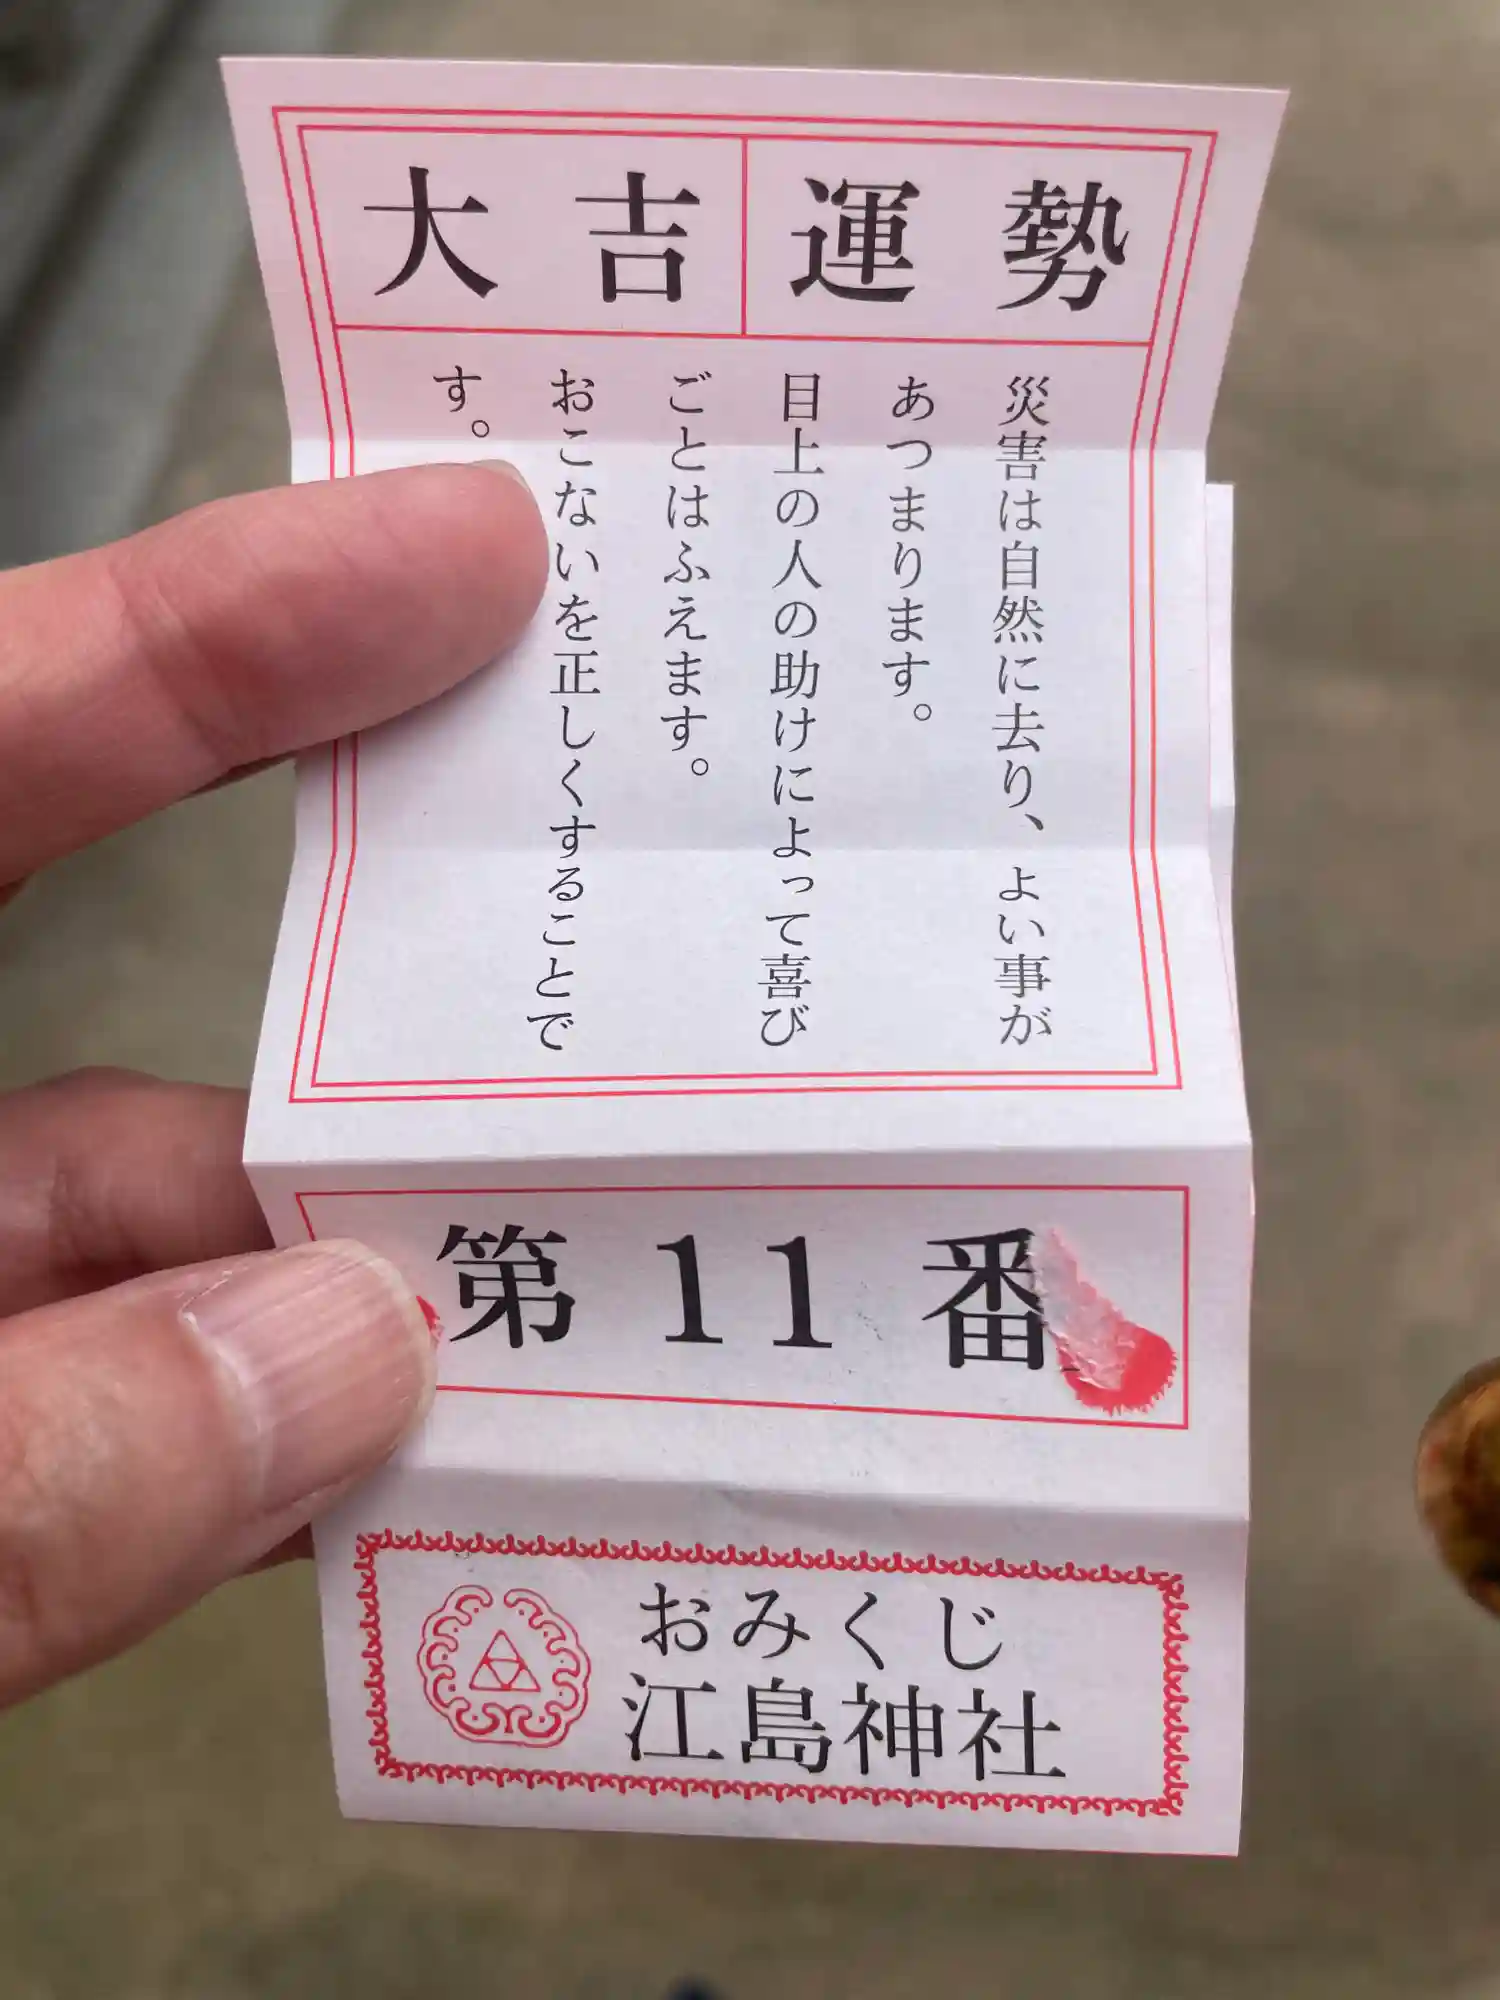 大吉 運勢
災害は自然に去り、よい事が
あつまります。
目上の人の助けによって喜び
ごとはふえます。
おこないを正しくすることで
す。
第11番
おみくじ
江島神社